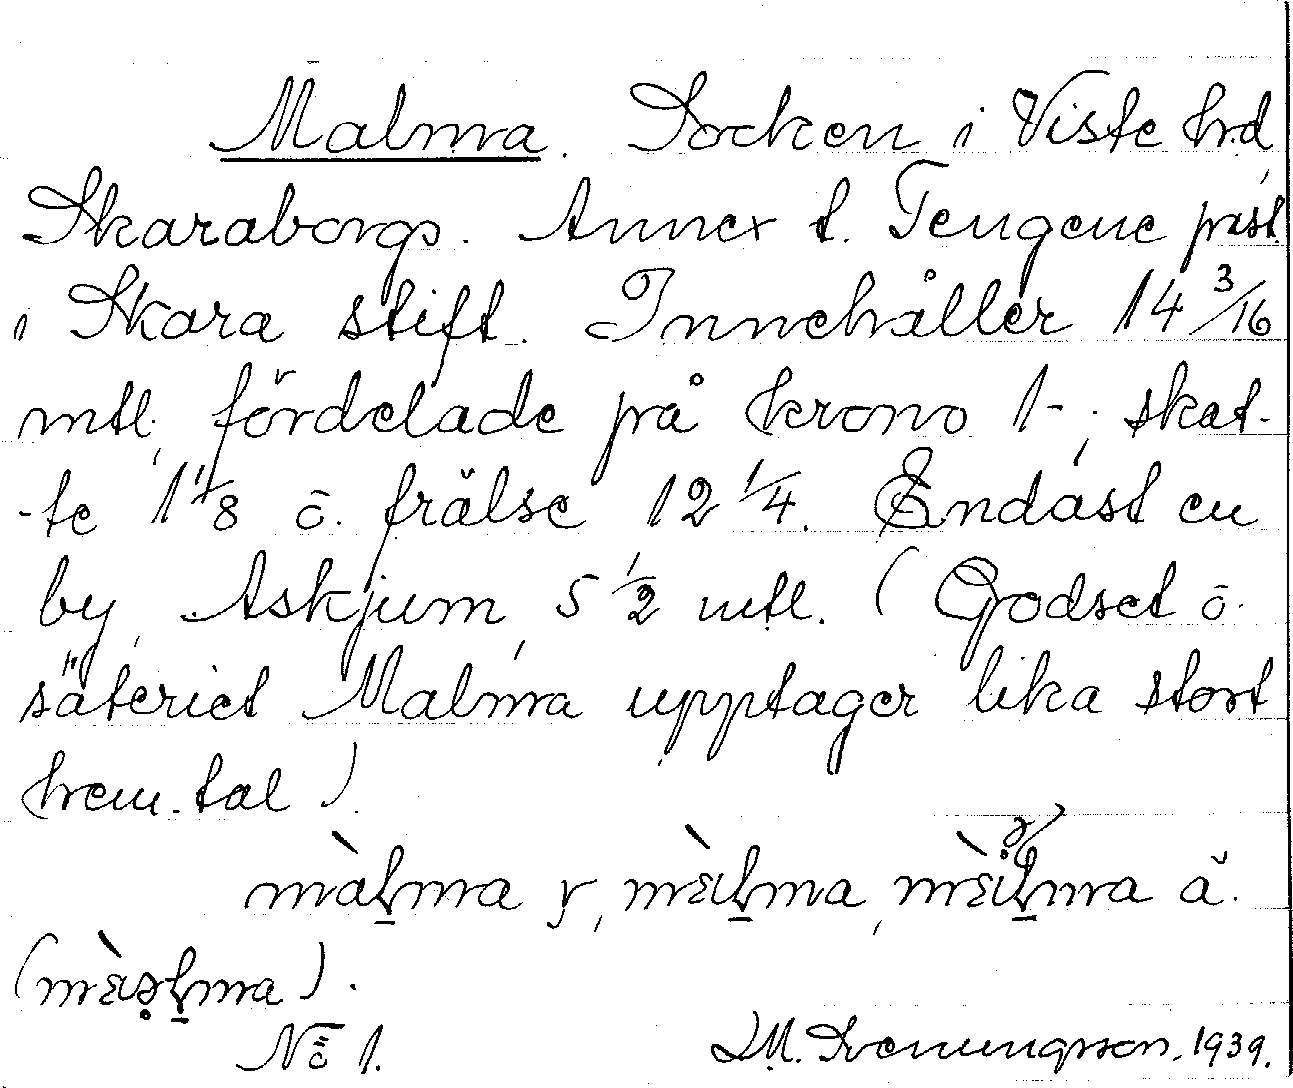 Malma. Socken i Viste hrd,
Skaraborgs. Annex t. Tengene past.
i Skara stift. Innehåller 14 3/16
mtl, fördelade på krono 1-; skat-
-te 1 1/8 o. frälse 12 1/4. Endast en
by, Askjum, 5 1/2 mtl. (Godset o.
säteriet Malma upptager lika stort
hem.tal).
No 1. J.M. Svenungsson. 1939.